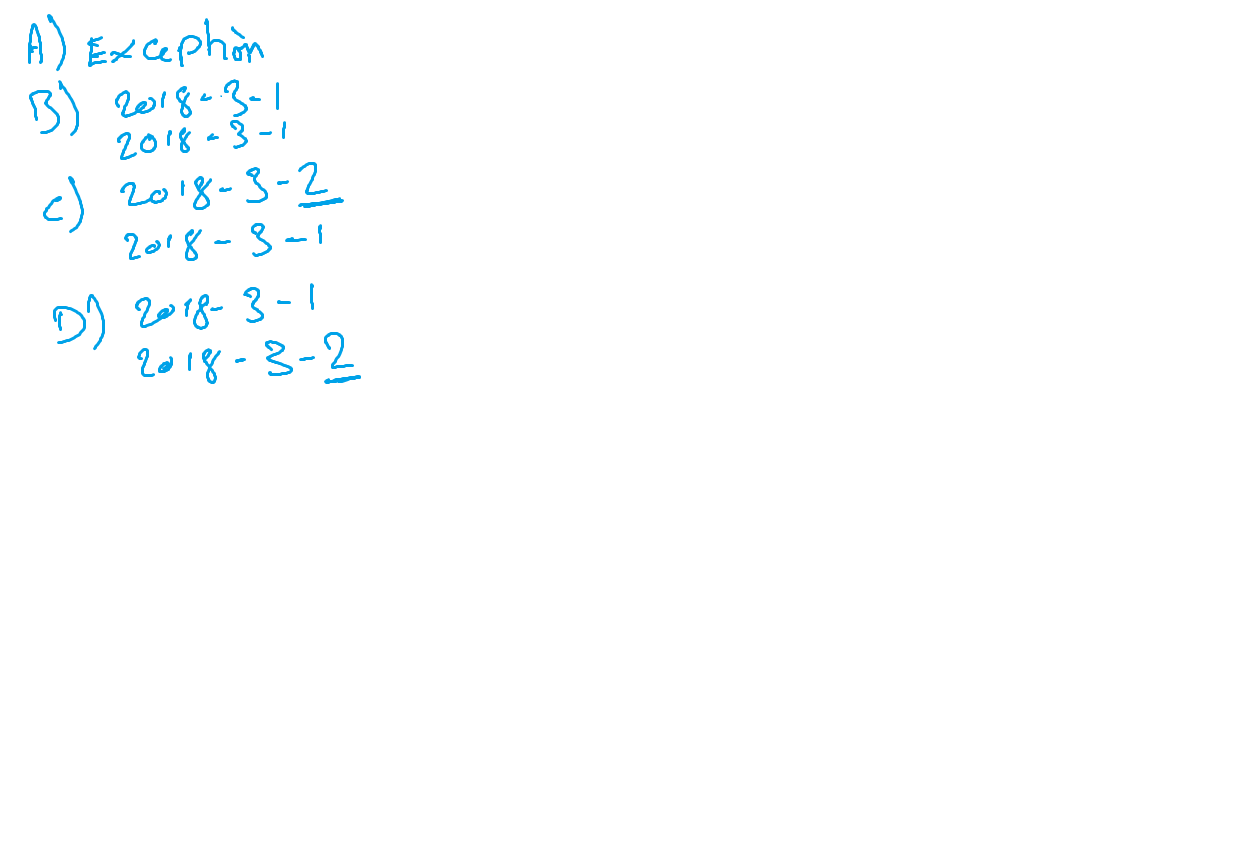 A) Exception
B) 2018-3-1
2018-3-1
C) 2018-3-2
2018-3-1
D) 2018-3-1
2018-3-2